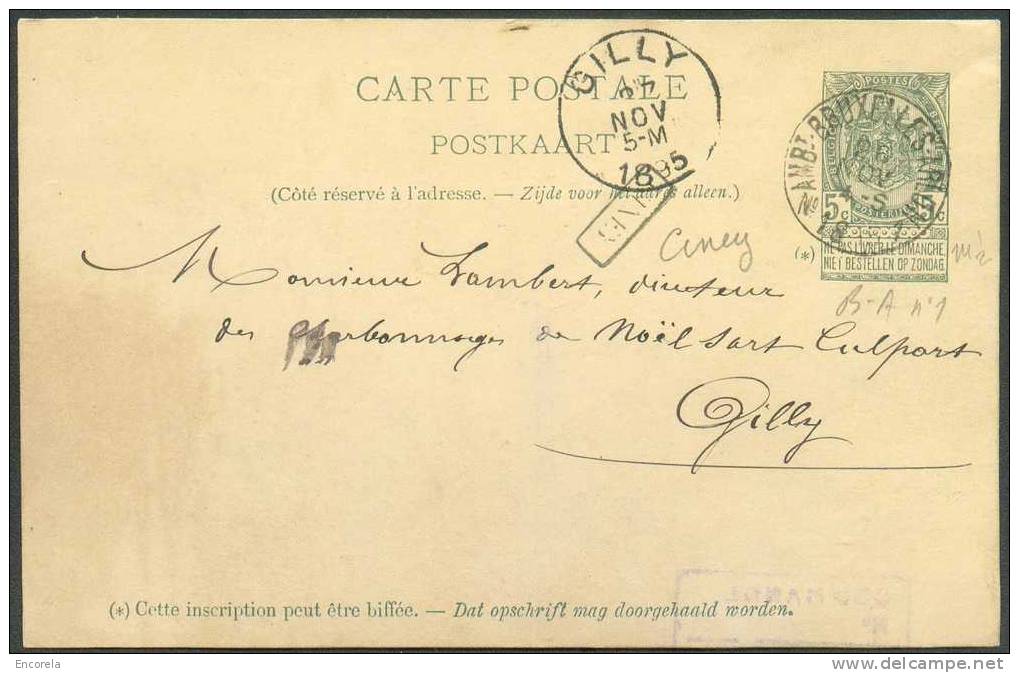 CARTE POSTALE
POSTKAART
(Côté réservé à l'adresse. — Zijde voor het adres alleen.)
GILLY
NOV
5-M
1895
POSTES
AMBT-BRUXELLES-ARL
No
5c 5c
(*) NE PAS LIVRER LE DIMANCHE.
NIET BESTELLEN OP ZONDAG.
Ciney
B-A n°1
Monsieur Lambert, directeur
des Charbonnages de Noël Sart Culpart
Gilly
(*) Cette inscription peut être biffée. — Dat opschrift mag doorgehaald worden.
Encorela
www.delcampe.net